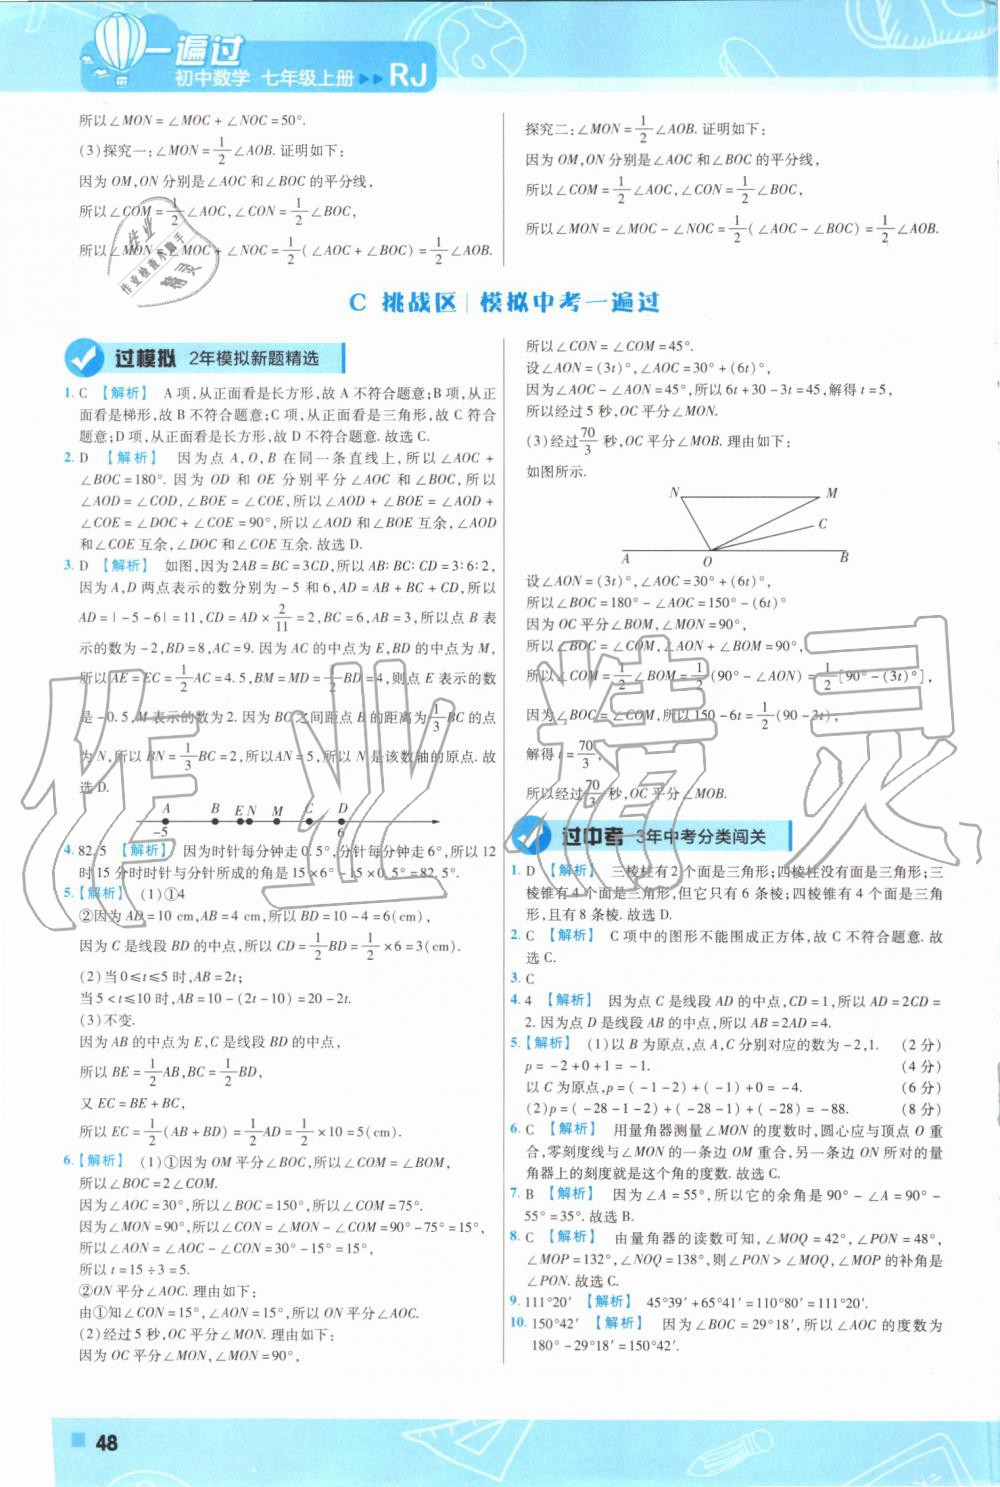 一遍过
初中数学 七年级上册 RJ
所以∠MON=∠MOC+∠NOC=50°.
(3)探究一:∠MON=1/2∠AOB.证明如下:
因为OM,ON分别是∠AOC和∠BOC的平分线,
所以∠COM=1/2∠AOC,∠CON=1/2∠BOC,
所以∠MON=∠MOC+∠NOC=1/2(∠AOC+∠BOC)=1/2∠AOB.
探究二:∠MON=1/2∠AOB.证明如下:
因为OM,ON分别是∠AOC和∠BOC的平分线,
所以∠COM=1/2∠AOC,∠CON=1/2∠BOC,
所以∠MON=∠MOC-∠NOC=1/2(∠AOC-∠BOC)=1/2∠AOB.
C 挑战区 模拟中考一遍过
过模拟 2年模拟新题精选
1. C 【解析】 A项,从正面看是长方形,故A不符合题意;B项,从正
面看是梯形,故B不符合题意;C项,从正面看是三角形,故C符合
题意;D项,从正面看是长方形,故D不符合题意.故选C.
2. D 【解析】 因为点A,O,B在同一条直线上,所以∠AOC+
∠BOC=180°.因为OD和OE分别平分∠AOC和∠BOC,所以
∠AOD=∠COD,∠BOE=∠COE,所以∠AOD+∠BOE=∠AOD+
∠COE=∠DOC+∠COE=90°,所以∠AOD和∠BOE互余,∠AOD
和∠COE互余,∠DOC和∠COE互余.故选D.
3. D 【解析】 如图,因为2AB=BC=3CD,所以AB:BC:CD=3:6:2,
因为A,D两点表示的数分别为-5和6,AD=AB+BC+CD,所以
AD=|-5-6|=11,CD=AD×2/11=2,BC=6,AB=3,所以点B表
示的数为-2,BD=8,AC=9.因为AC的中点为E,BD的中点为M,
所以AE=EC=1/2AC=4.5,BM=MD=1/2BD=4,则点E表示的数
是-0.5,M表示的数为2.因为BC之间距点B的距离为1/3BC的点
为N,所以BN=1/3BC=2,所以AN=5,所以N是该数轴的原点.故
选D.
A B E N M C D
-5 6
4. 82.5 【解析】 因为时针每分钟走0.5°,分针每分钟走6°,所以12
时15分时时针与分针所成的角是15×6°-15×0.5°=82.5°.
5.【解析】 (1)①4
②因为AD=10 cm,AB=4 cm,所以BD=10-4=6(cm),
因为C是线段BD的中点,所以CD=1/2BD=1/2×6=3(cm).
(2)当0≤t≤5时,AB=2t;
当5<t≤10时,AB=10-(2t-10)=20-2t.
(3)不变.
因为AB的中点为E,C是线段BD的中点,
所以BE=1/2AB,BC=1/2BD,
又EC=BE+BC,
所以EC=1/2(AB+BD)=1/2AD=1/2×10=5(cm).
6.【解析】 (1)①因为OM平分∠BOC,所以∠COM=∠BOM,
所以∠BOC=2∠COM.
因为∠AOC=30°,所以∠BOC=150°,所以∠COM=75°.
因为∠MON=90°,所以∠CON=∠MON-∠COM=90°-75°=15°,
所以∠AON=∠AOC-∠CON=30°-15°=15°,
所以t=15÷3=5.
②ON平分∠AOC.理由如下:
由①知∠CON=15°,∠AON=15°,所以ON平分∠AOC.
(2)经过5秒,OC平分∠MON.理由如下:
因为OC平分∠MON,∠MON=90°,
所以∠CON=∠COM=45°.
设∠AON=(3t)°,∠AOC=30°+(6t)°,
因为∠AOC-∠AON=45°,所以6t+30-3t=45,解得t=5,
所以经过5秒,OC平分∠MON.
(3)经过70/3秒,OC平分∠MOB.理由如下:
如图所示.
N M
C
A O B
设∠AON=(3t)°,∠AOC=30°+(6t)°,
所以∠BOC=180°-∠AOC=150°-(6t)°
因为OC平分∠BOM,∠MON=90°,
所以∠BOC=∠COM,∠AON+∠BOM=90°,
所以∠COM=1/2∠BOM=1/2(90°-∠AON)=1/2[90°-(3t)°],
因为∠BOC=∠COM,所以150-6t=1/2(90-3t),
解得t=70/3,
所以经过70/3秒,OC平分∠MOB.
过中考 3年中考分类闯关
1. D 【解析】 三棱柱有2个面是三角形;四棱柱没有面是三角形;三
棱锥有4个面是三角形,但它只有6条棱;四棱锥有4个面是三角
形,且有8条棱.故选D.
2. C 【解析】 C项中的图形不能围成正方体,故C不符合题意.故
选C.
3. C
4. 4 【解析】 因为点C是线段AD的中点,CD=1,所以AD=2CD=
2.因为点D是线段AB的中点,所以AB=2AD=4.
5.【解析】 (1)以B为原点,点A,C分别对应的数为-2,1. (2分)
p=-2+0+1=-1. (4分)
以C为原点,p=(-1-2)+(-1)+0=-4. (6分)
(2)p=(-28-1-2)+(-28-1)+(-28)=-88. (8分)
6. C 【解析】 用量角器测量∠MON的度数时,圆心应与顶点O重
合,零刻度线与∠MON的一条边OM重合,另一条边ON所对的量
角器上的刻度就是这个角的度数.故选C.
7. B 【解析】 因为∠A=55°,所以它的余角是90°-∠A=90°-
55°=35°.故选B.
8. C 【解析】 由量角器的读数可知,∠MOQ=42°,∠PON=48°,
∠MOP=132°,∠NOQ=138°,则∠PON>∠MOQ,∠MOP的补角是
∠PON.故选C.
9. 111°20′ 【解析】 45°39′+65°41′=110°80′=111°20′.
10. 150°42′ 【解析】 因为∠BOC=29°18′,所以∠AOC的度数为
180°-29°18′=150°42′.
48
作业精灵